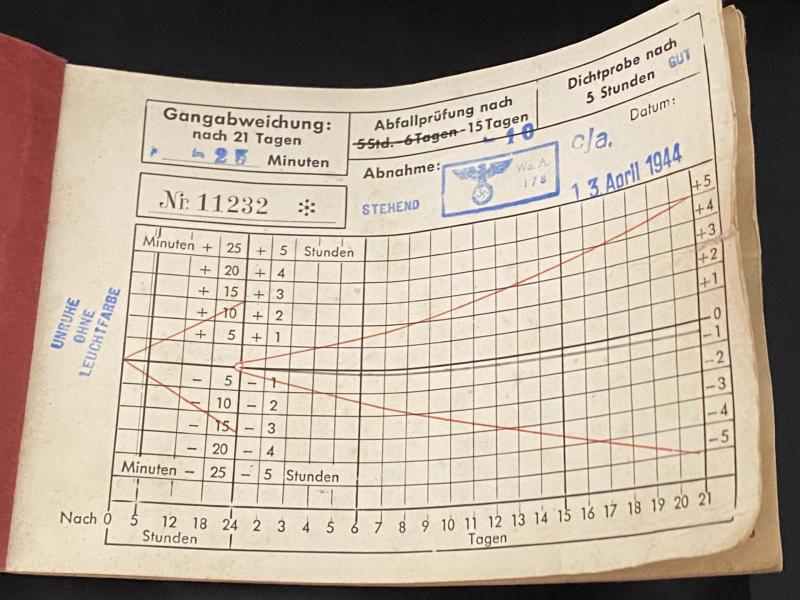 Gangabweichung:
nach 21 Tagen
- 25 Minuten
Abfallprüfung nach
5 Std. - 6 Tagen - 15 Tagen
- 10
Dichtprobe nach
5 Stunden GUT
Abnahme:
c/a.
Datum:
Wa. A.
178
STEHEND
13. April 1944
Nr. 11232 *
UNRUHE
OHNE
LEUCHTFARBE
Minuten + 25 + 5 Stunden
+ 20 + 4
+ 15 + 3
+ 10 + 2
+ 5 + 1
- 5 - 1
- 10 - 2
- 15 - 3
- 20 - 4
Minuten - 25 - 5 Stunden
+5
+4
+3
+2
+1
0
-1
-2
-3
-4
-5
Nach 0 5 12 18 24 2 3 4 5 6 7 8 9 10 11 12 13 14 15 16 17 18 19 20 21
Stunden Tagen